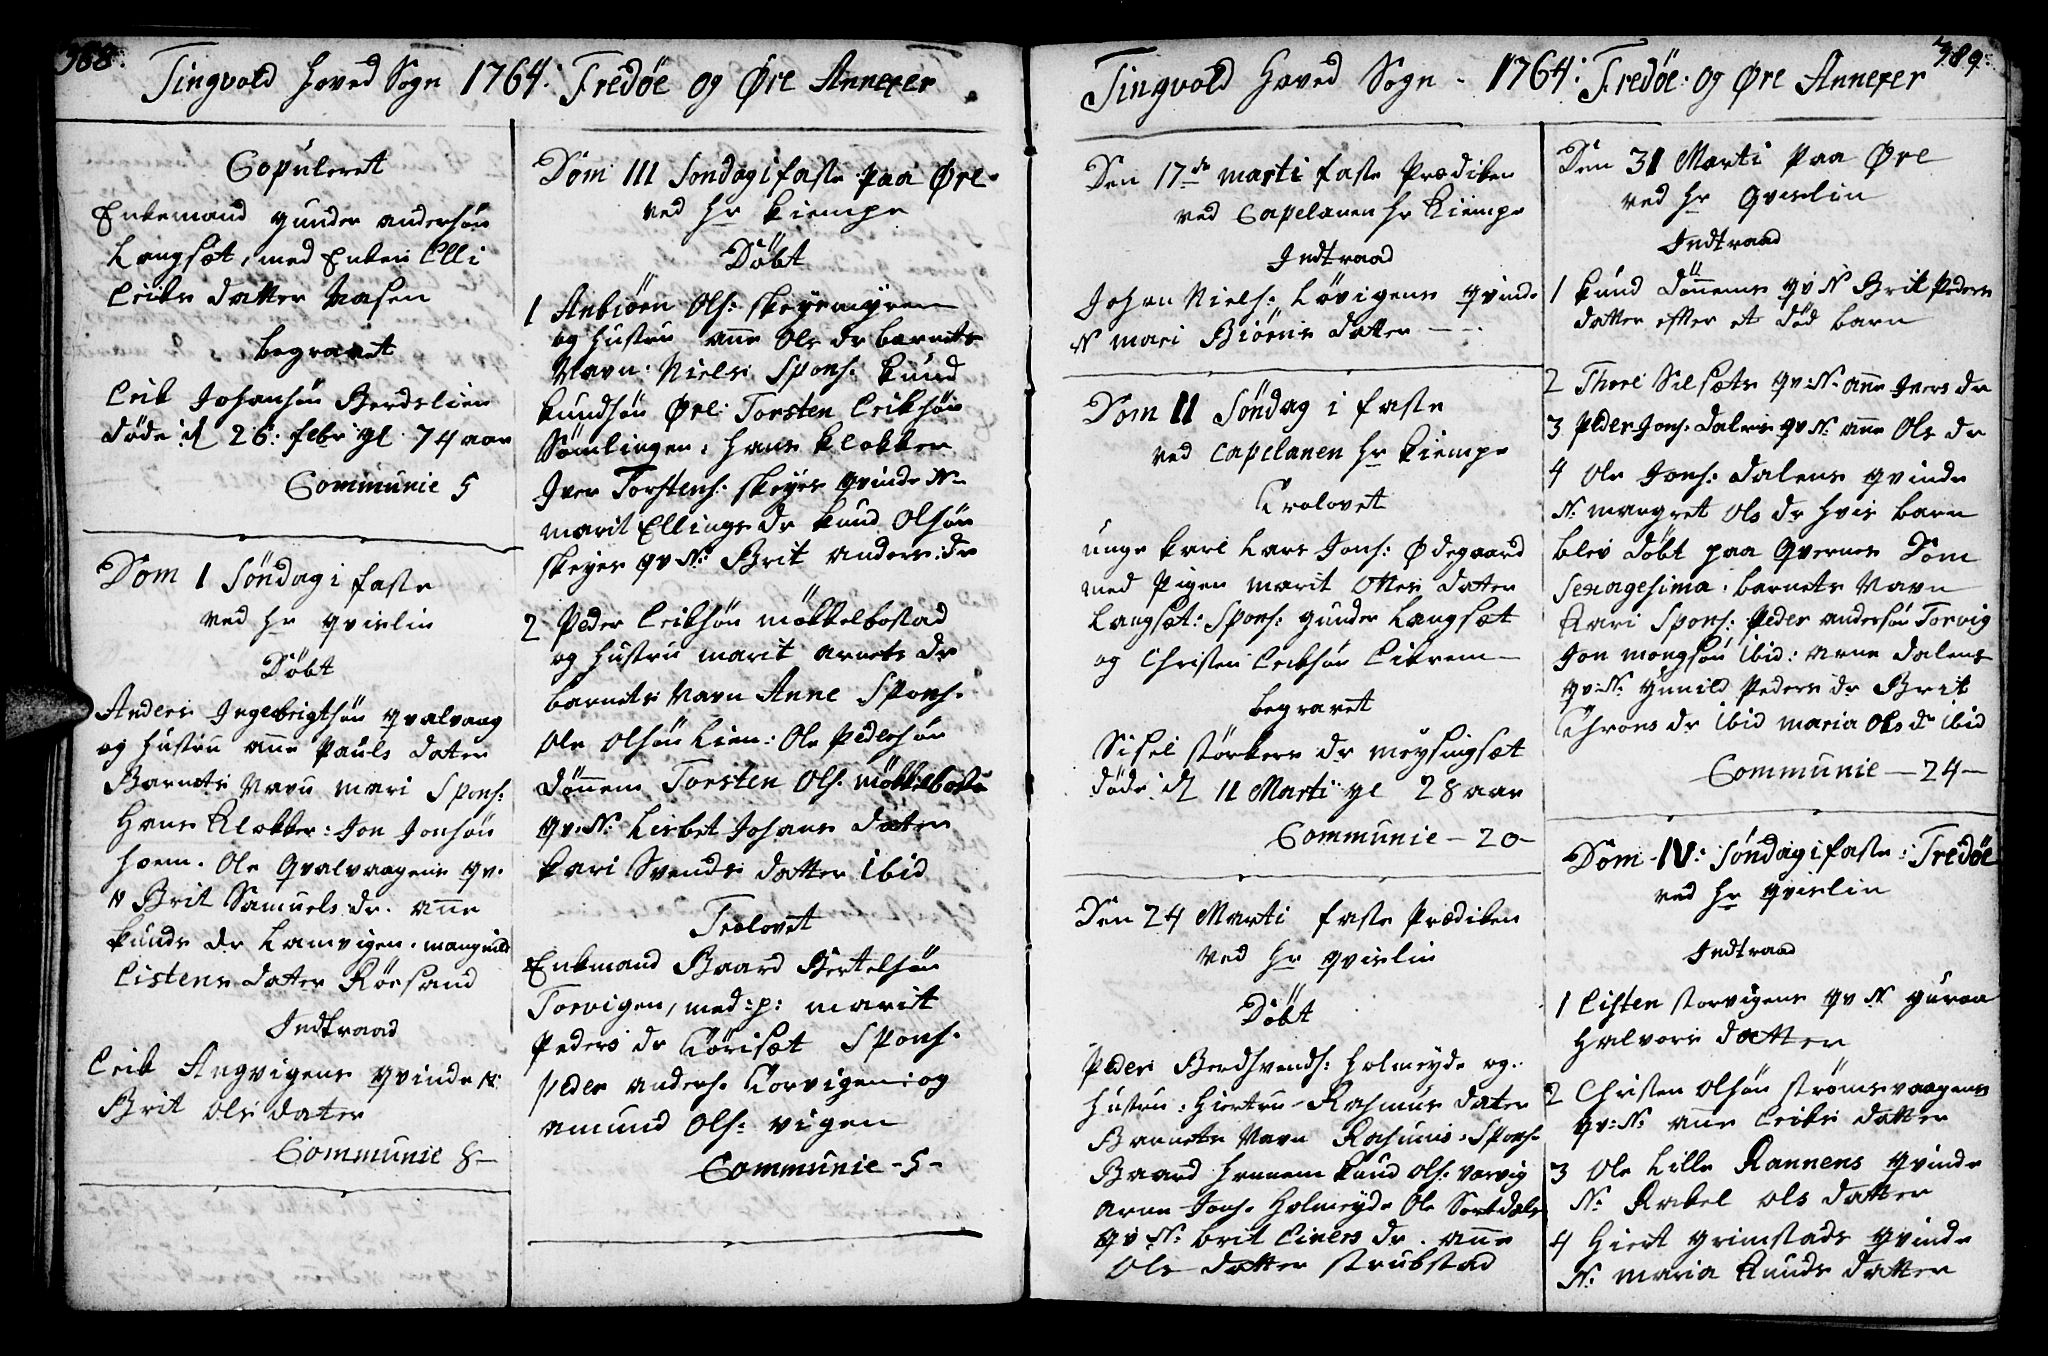 388.
Tingvold Hoved Sogn 1764: Fredöe og Øre Annexer
Copuleret
Enkemand gunder andersön
Langsæt, med Enken Elli
Eriks datter Aasen
begravet
Erik Johansön Berdslien
döde d 26: febr gl 74 aar
Communie 5
Dom 1 Söndag i faste
ved Hr qvislin
Döbt
Anders Ingebrigtsön qvalvaag
og Hustru ane Pauls dater
Barnets Navn mari Spons:
Hans Klokker: Jon Jonsön
Hoem. Ole Qvalvaagens qv.
N Brit Samuels dr. ane
knuds dr Lamvigen. mangnild
Listens dater Röesand
Indtraad
Erik Angvigens qvinde N:
Brit Ols dater
Communie 8-
Dom III Söndag i faste paa Øre
ved Hr kiempe
Döbt
1 Anbiören Ols: skeyemyren
og Hustru ane Ols dr barnets
Navn: Niels Spons: knud
knudsön Øre: Torsten Eriksön
Sömlingen: Hans klokker
Iver Torstens: skeyes qvinde N-
marit Ellings dr knud Olsön
skeyes qv N: Brit anders dr
2 Peder Eriksön mökkelbostad
og Hustru marit arnets dr
barnets Navn Anne Spons.
Ole Olsön Lien: Ole Pedersön
dönnem Torsten Ols. mökkelbosta
qv: N: Lisbet Johans dater
kari Svends datter ibid
Trolovet
Enkmand Baard Bertelsön
Torvigen, med: p: marit
Peders dr Törisæt Spons.
peder anders. Torvigen: og
amund Ols: vigen
Communie -5-
389:
Tingvold Hoved Sogn - 1764: Fredöe: og Øre Annexer
Den 17de marti faste Prædiken
ved Capelanen Hr Kiempe
Indtraad
Johan Niels: Lövigens qvinde
N mari Biörns datter
Dom II Söndag i faste
ved Capelanen Hr kiempe
Trolovet
unge karl Lars Jons: Ødegaard
med Pigen marit Ottes dater
Langsæt: Spons: gunder Langsæt
og Christen Eriksön Eikrem
begravet
Sisel störkers dr meysingsæt
döde d 11 Marti gl 28 aar
Communie - 20-
Den 24 Marti faste Prædiken
Ved Hr qvislin
Döbt
Peder Berdsvends: Holmeyde og
Hustru: Hiertru Rasmus dater
Barnets Navn Rasmus: Spons.
Baard Hennem knud Ols: vaevig
arne Jons. Holmeyde Ole Sertdals
qv N: brit Einers dr. ane
Ols datter strubstad
Den 31 Marti paa Øre
ved Hr qvislin
Indtraad
1 knud dönnems qv N Brit Peders
datter efter et död barn
2 Thore Silsets qv: N. ane Ivers dr
3 Peder Jons. dalens qv N: ane Ols dr
4 Ole Jons: dalens qvinde
N. margret Ols dr hvis barn
blev döbt paa qvernes Dom
Sexagesima. barnets Navn
Kari Spons: Peder andersön Torvig
Jon mongsön ibid: arne dalens
qv: N: gunild Peders dr Brit
Throns dr ibid maria Ols dr ibid
Communie -24-
Dom IV: Söndag i faste: Fredöe
ved Hr qvislin
Indtraad
1 Eisten storvigens qv N guroa
Halvors datter
2 Christen Olsön strömsvaagens
qv: N: ane Eriks datter
3 Ole Lille Rannens qvinde
N: Rakel ols datter
4 Hiert grimstads qvinde
N: maria knuds datter